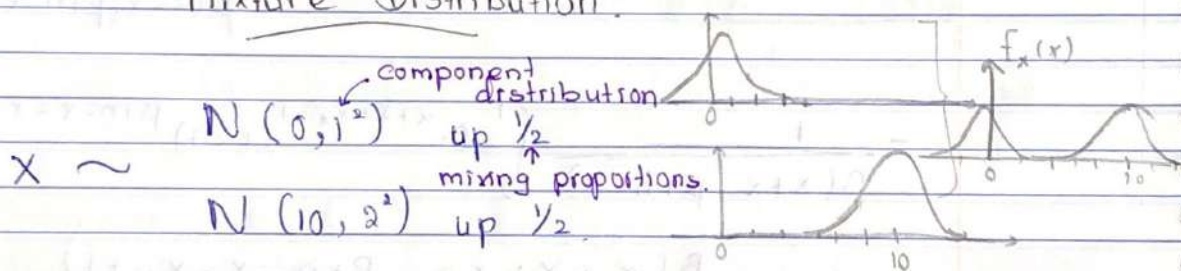 Mixture Distribution.
component distribution
N (0, 1²) up ½
X ~
mixing proportions.
N (10, 2²) up ½.
0
0 10
f_x(x)
0 10